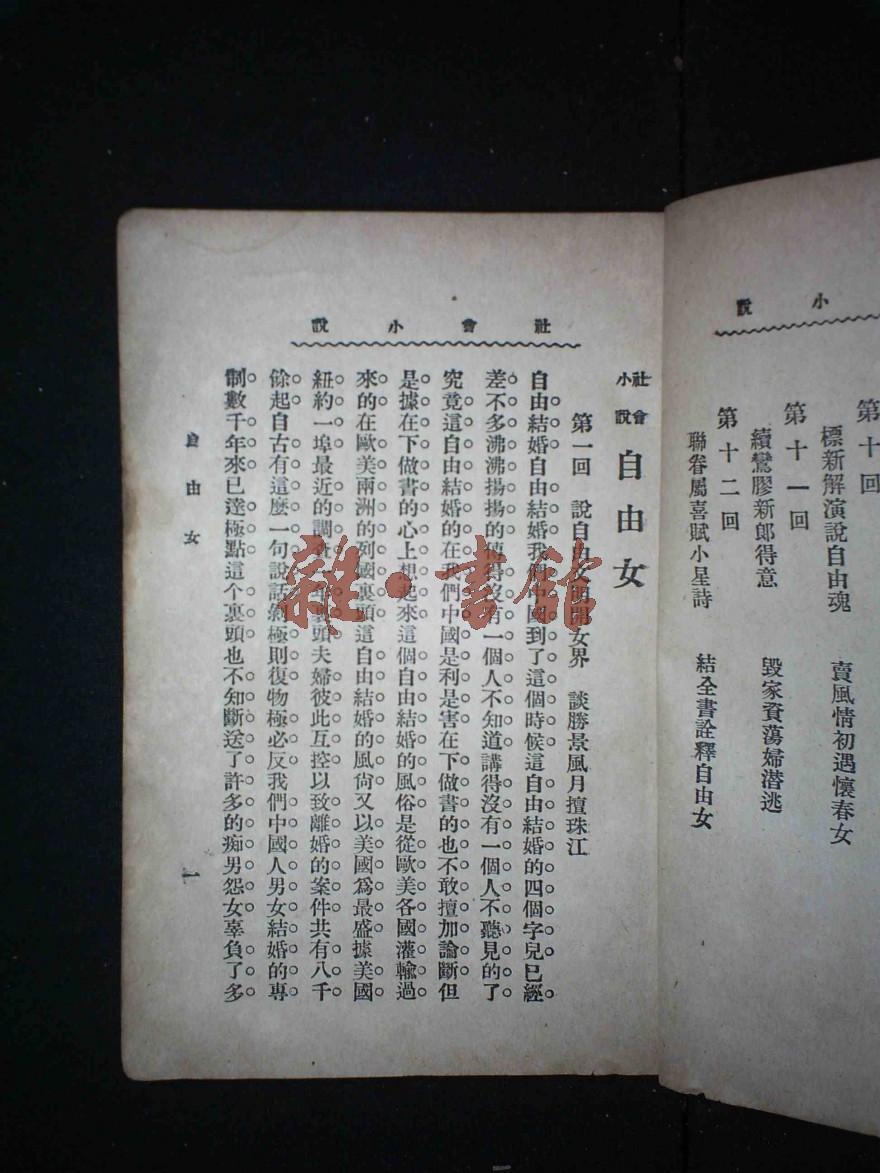 說　小
第十回
標新解演說自由魂　賣風情初遇懷春女
第十一回
續鸞膠新郎得意　毀家資蕩婦潛逃
第十二回
聯眷屬喜賦小星詩　結全書詮釋自由女
社會小說
社會小說　自由女
第一回　說自由文明開女界　談勝景風月擅珠江
自由結婚自由結婚我們中國到了這個時候這自由結婚的四個字兒已經
差不多沸沸揚揚的傳得沒有一個人不知道講得沒有一個人不聽見的了
究竟這自由結婚的在我們中國是利是害在下做書的也不敢擅加論斷但
是據在下做書的心上想起來這個自由結婚的風俗是從歐美各國灌輸過
來的在歐美兩洲的列國裏頭這自由結婚的風尙又以美國爲最盛據美國
紐約一埠最近的調查一年裏頭夫婦彼此互控以致離婚的案件共有八千
餘起自古有這麼一句說話剝極則復物極必反我們中國人男女結婚的專
制數千年來已達極點這个裏頭也不知斷送了許多的痴男怨女辜負了多
自由女
一
雜·書館